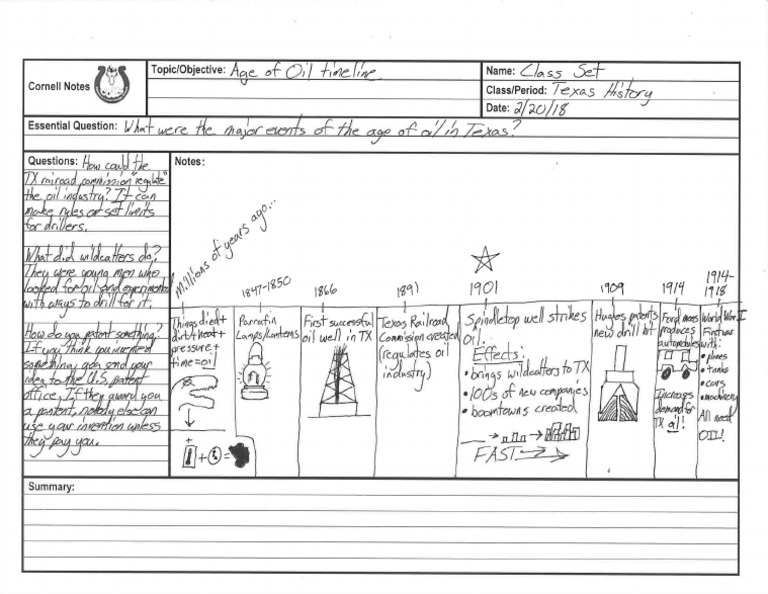 Cornell Notes
Topic/Objective: Age of Oil timeline
Name: Class Set
Class/Period: Texas History
Date: 2/20/18
Essential Question: What were the major events of the age of oil in Texas?
Questions: How could the
TX railroad commission "regulate"
the oil industry? It can
make rules or set limits
for drillers.
What did wildcatters do?
They were young men who
looked for oil and experimented
with ways to drill for it.
How do you patent something?
If you think you invented
something, you send your
idea to the U.S. patent
office. If they award you
a patent, nobody else can
use your invention unless
they pay you.
Notes:
Millions of years ago...
Things died +
dirt + heat +
pressure +
time = oil
+
+ =
1847-1850
Parrafin
Lamps/Lanterns
1866
First successful
oil well in TX
1891
Texas Railroad
Commission created
(regulates oil
industry)
1901
Spindletop well strikes
oil.
Effects:
• brings wildcatters to TX
• 100s of new companies
• boomtowns created
FAST
1909
Hughes patents
new drill bit
1914
Ford mass
produces
automobiles
Increases
demand for
TX oil!
1914-
1918
World War I
First war
with:
• planes
• tanks
• cars
• machinery
All need
OIL!
Summary: